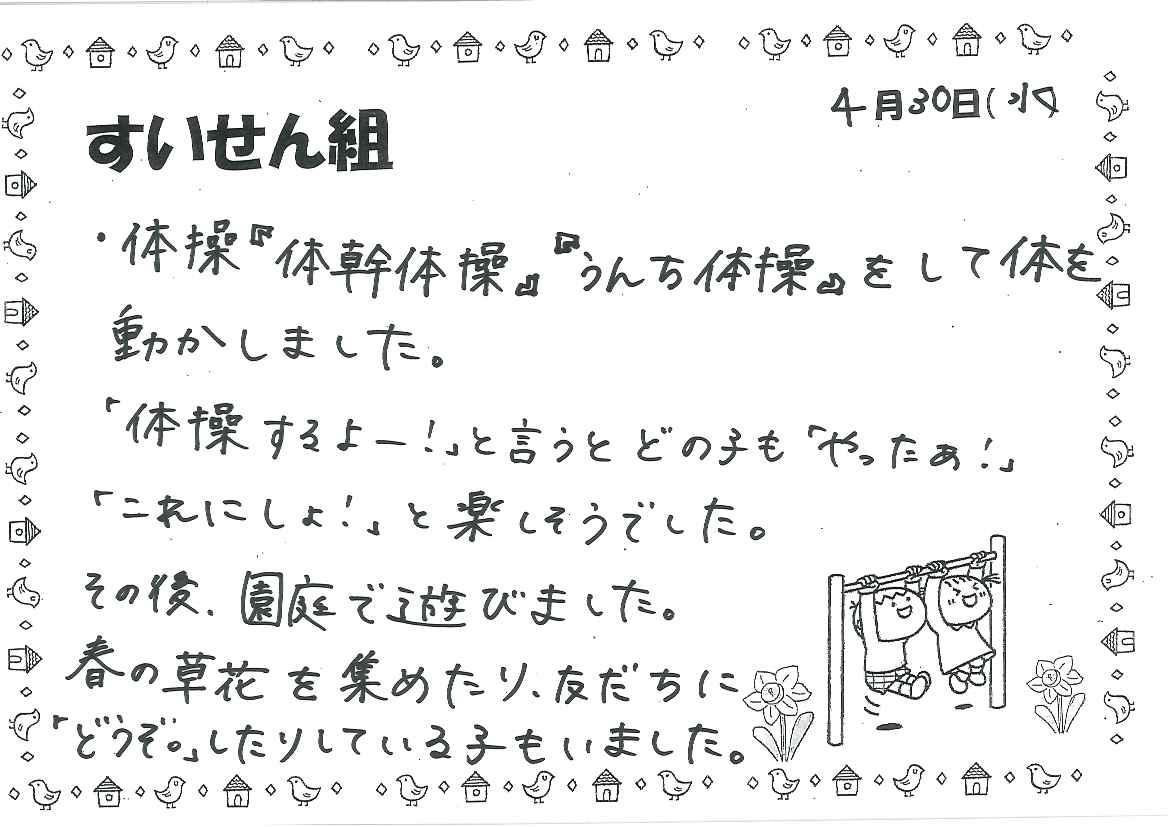 4月30日(水)
すいせん組
・体操『体幹体操』『うんち体操』をして体を
動かしました。
「体操するよー!」と言うとどの子も「やったぁ!」
「これにしよ!」と楽しそうでした。
その後、園庭で遊びました。
春の草花を集めたり、友だちに
「どうぞ。」したりしている子もいました。